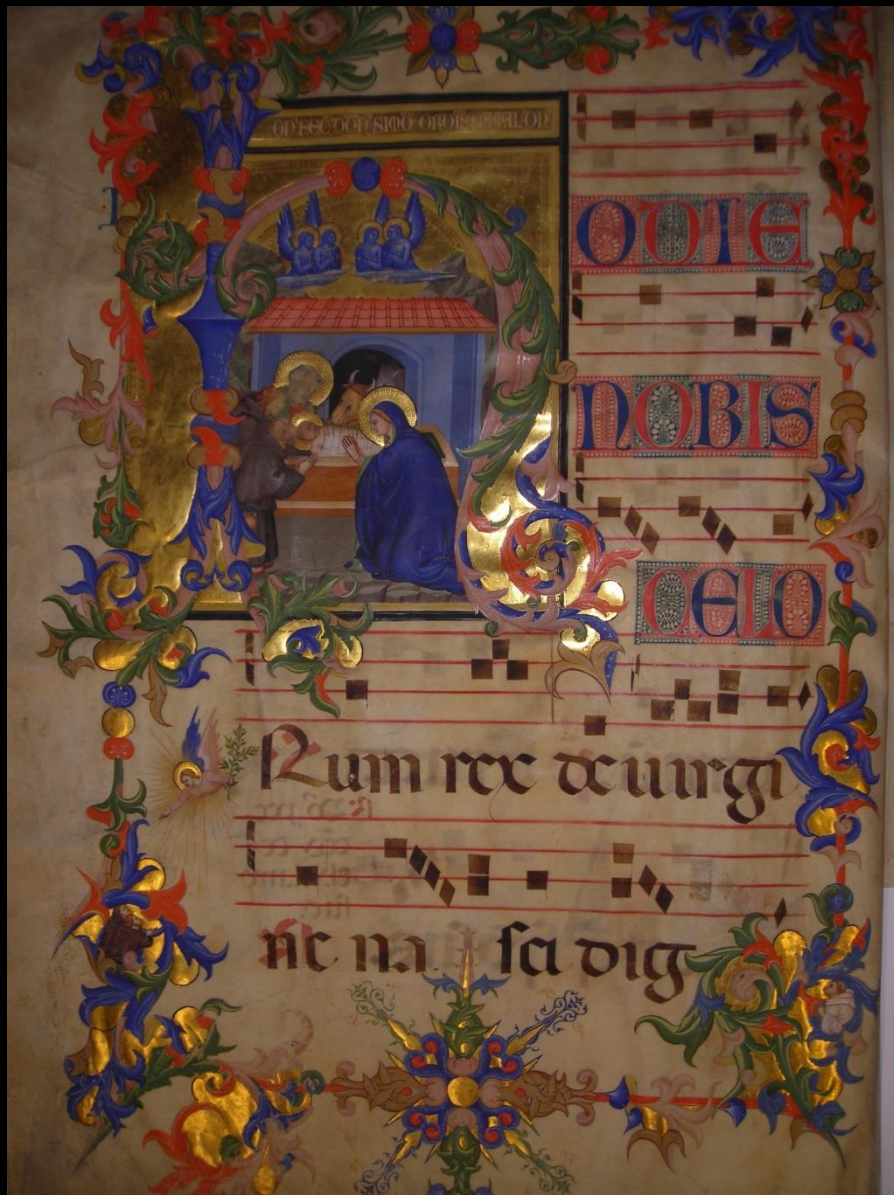 DON SIMO
HODIE
NOBIS
CELO
Rum rex de uirgi
ne na sci dig